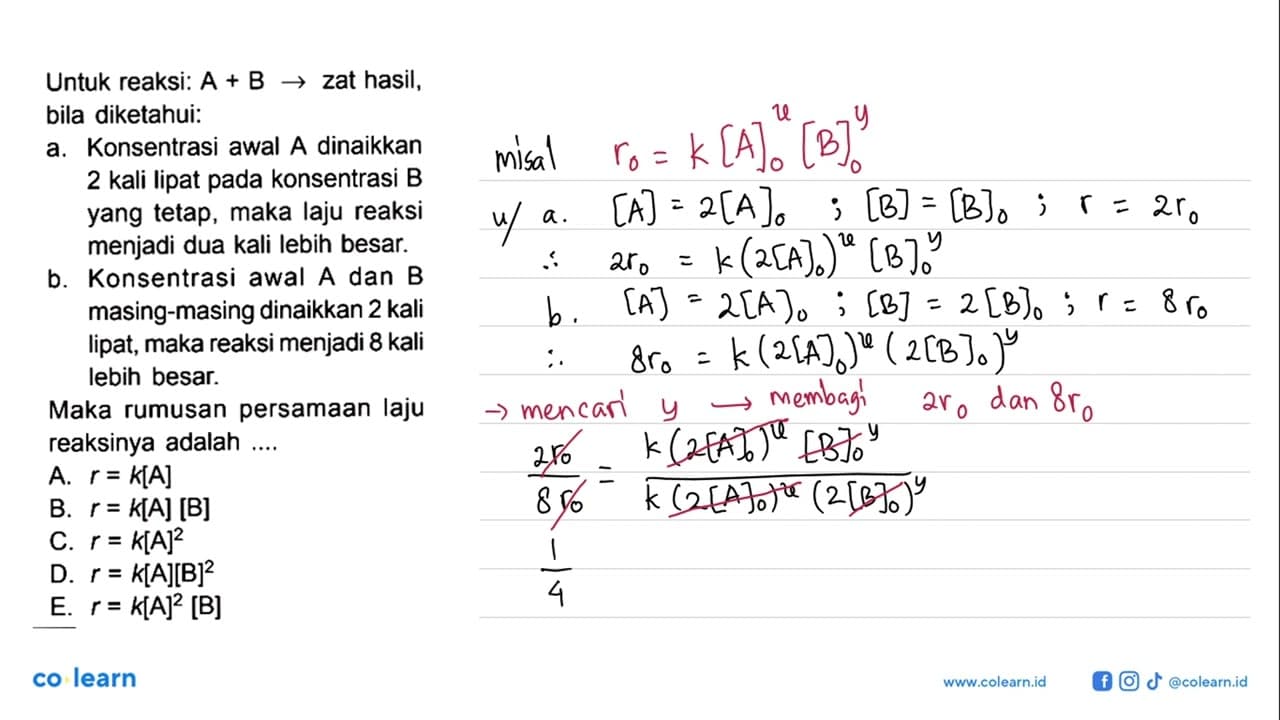 Untuk reaksi: A + B → zat hasil,
bila diketahui:
a. Konsentrasi awal A dinaikkan
2 kali lipat pada konsentrasi B
yang tetap, maka laju reaksi
menjadi dua kali lebih besar.
b. Konsentrasi awal A dan B
masing-masing dinaikkan 2 kali
lipat, maka reaksi menjadi 8 kali
lebih besar.
Maka rumusan persamaan laju
reaksinya adalah ....
A. r = k[A]
B. r = k[A] [B]
C. r = k[A]²
D. r = k[A][B]²
E. r = k[A]² [B]
misal r₀ = k[A]₀ˣ [B]₀ʸ
u/ a. [A] = 2[A]₀ ; [B] = [B]₀ ; r = 2r₀
∴ 2r₀ = k(2[A]₀)ˣ [B]₀ʸ
b. [A] = 2[A]₀ ; [B] = 2[B]₀ ; r = 8r₀
∴ 8r₀ = k(2[A]₀)ˣ (2[B]₀)ʸ
→ mencari y → membagi 2r₀ dan 8r₀
2r₀/8r₀ = k(2[A]₀)ˣ [B]₀ʸ / k(2[A]₀)ˣ (2[B]₀)ʸ
1/4
co learn
www.colearn.id
@colearn.id